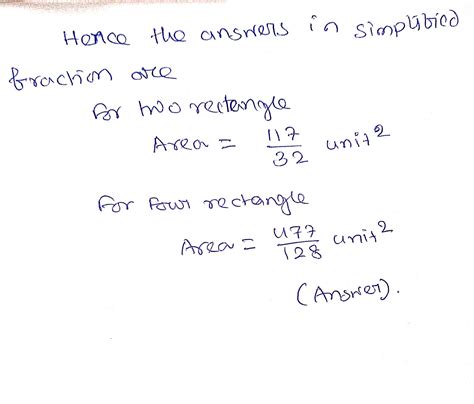 Hence the answers in simplified
fraction are
for two rectangle
Area = 117/32 unit²
for four rectangle
Area = 477/128 unit²
(Answer).